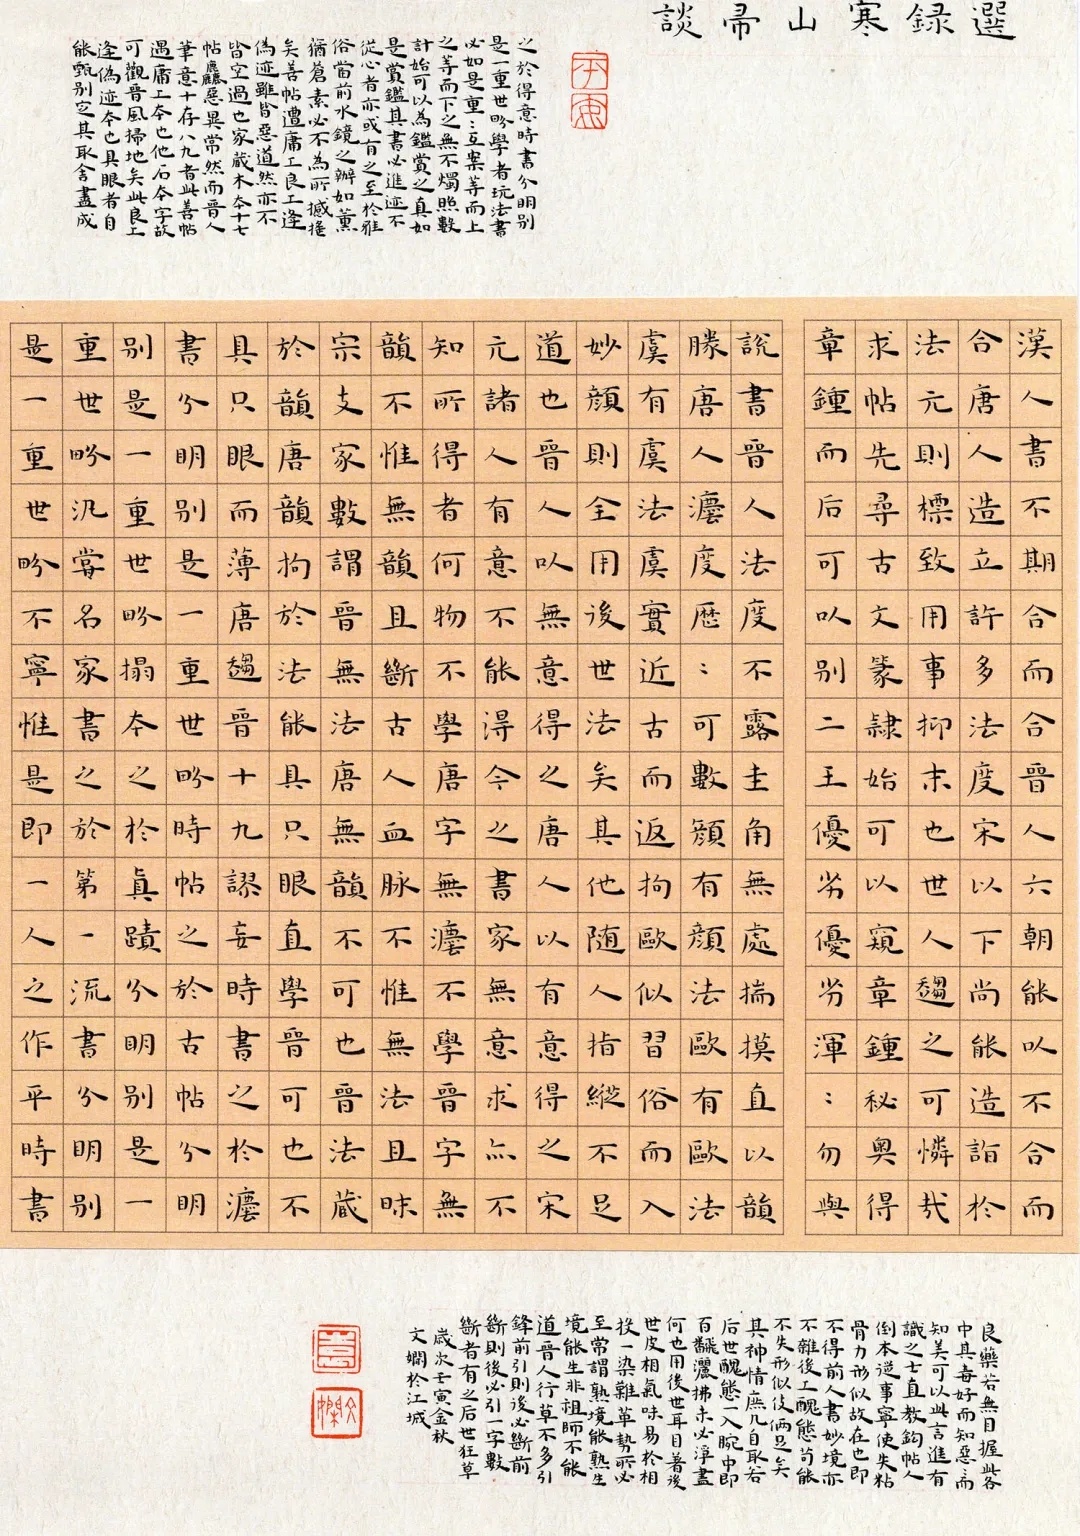 選録寒山帚談
漢人書不期合而合晉人六朝能以不合而
合唐人造立許多法度宋以下尚能造詣於
法元則標致用事抑末也世人趨之可憐哉
求帖先尋古文篆隸始可以窺章鍾秘奥得
章鍾而后可以别二王優劣優劣渾〻勿與
說書晉人法度不露圭角無處揣摸直以韻
勝唐人灋度歷〻可數顔有顔法歐有歐法
虞有虞法虞實近古而返拘歐似習俗而入
妙顔則全用後世法矣其他随人指縱不足
道也晉人以無意得之唐人以有意得之宋
元諸人有意不能得今之書家無意求亦不
知所得者何物不學唐字無灋不學晉字無
韻不惟無韻且斷古人血脉不惟無法且昧
宗支家數謂晉無法唐無韻不可也晉法蔵
於韻唐韻拘於法能具只眼直學晉可也不
具只眼而薄唐趨晉十九謬妄時書之於灋
書分明别是一重世畛時帖之於古帖分明
别是一重世畛搨本之於真蹟分明别是一
重世畛汎嘗名家書之於第一流書分明别
是一重世畛不寧惟是即一人之作平時書
之於得意時書分明别
是一重世畛學者玩法書
必如是重〻互案等而上
之等而下之無不燭照數
計始可以為鑑賞之真如
是賞鑑其書必進迹不
從心者亦或有之至於雅
俗當前水鏡之辦如薰
猶蒼素必不為所撼搖
矣善帖遭庸工良工逢
偽迹雖皆惡道然亦不
皆空過也家蔵木本十七
帖麤惡異常然而晉人
筆意十存八九者此善帖
遇庸工本也他石本字故
可觀晉風掃地矣此良工
逢偽迹本也具眼者自
能甄别定其取舍盡成
良藥若無目握此各
中其毒好而知惡〻而
知美可以此言進有
識之士直教鈎帖人
倒本逆事寧使失粘
骨力形似故在也即
不得前人書妙境亦
不雜後工醜態苟能
不失形似伎倆足矣
其神情庶几自取若
后世醜態一入腕中即
百飜灑拂未必淨盡
何也用後世耳目著後
世皮相氣味易於相
投一染難革勢所必
至常謂熟境能熟生
境能生非祖師不能
道晉人行草不多引
鋒前引則後必斷前
斷則後必引一字數
斷者有之后世狂草
歲次壬寅金秋
文嫻於江城